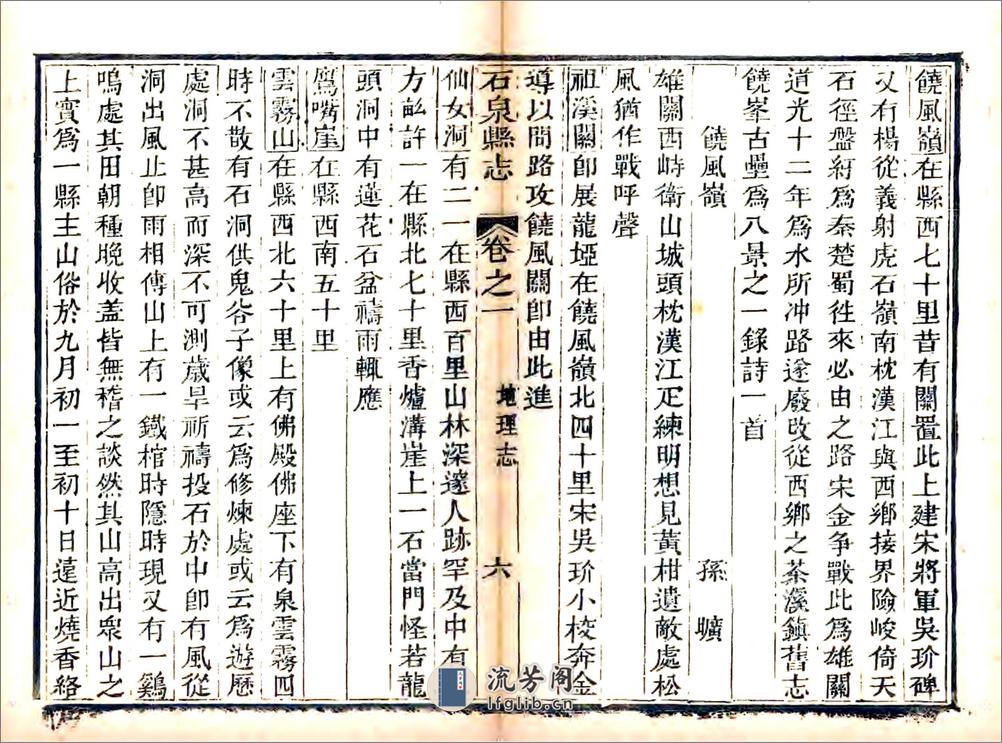 饒風嶺在縣西七十里昔有關置此上建宋將軍吳玠碑
又有楊從義射虎石嶺南枕漢江與西鄉接界險峻倚天
石徑盤紆爲秦楚蜀徃來必由之路宋金争戰此爲雄關
道光十二年爲水所冲路遂廢改從西鄉之茶溪鎭舊志
饒峯古壘爲八景之一錄詩一首
饒風嶺 孫曠
雄關西峙衛山城頭枕漢江疋練明想見黃柑遺敵處松
風猶作戰呼聲
祖溪關卽展龍埡在饒風嶺北四十里宋吳玠小校奔金
導以間路攻饒風關卽由此進
石泉縣志 卷之一 地理志 六
仙女洞有二一在縣西百里山林深邃人跡罕及中有
方畝許一在縣北七十里香爐溝崖上一石當門怪若龍
頭洞中有蓮花石盆禱雨輒應
鷹嘴崖在縣西南五十里
雲霧山在縣西北六十里上有佛殿佛座下有泉雲霧四
時不散有石洞供鬼谷子像或云爲修煉處或云爲遊歷
處洞不甚高而深不可測歲旱祈禱投石於中卽有風從
洞出風止卽雨相傳山上有一鐵棺時隱時現又有一鷄
鳴處其田朝種晚收盖皆無稽之談然其山高出衆山之
上實爲一縣主山俗於九月初一至初十日遠近燒香絡
流芳阁
lfglib.cn